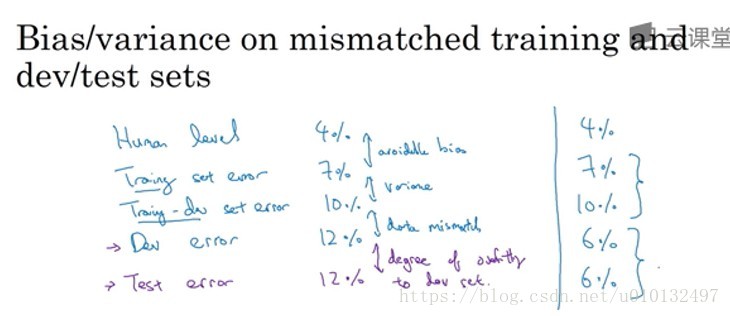 Bias/variance on mismatched training and
dev/test sets
云课堂
Human level 4% 4%
avoidable bias
Training set error 7% 7%
variance
Training-dev set error 10% 10%
data mismatch
→ Dev error 12% 6%
degree of overfitting
to dev set.
→ Test error 12% 6%
https://blog.csdn.net/u010132497